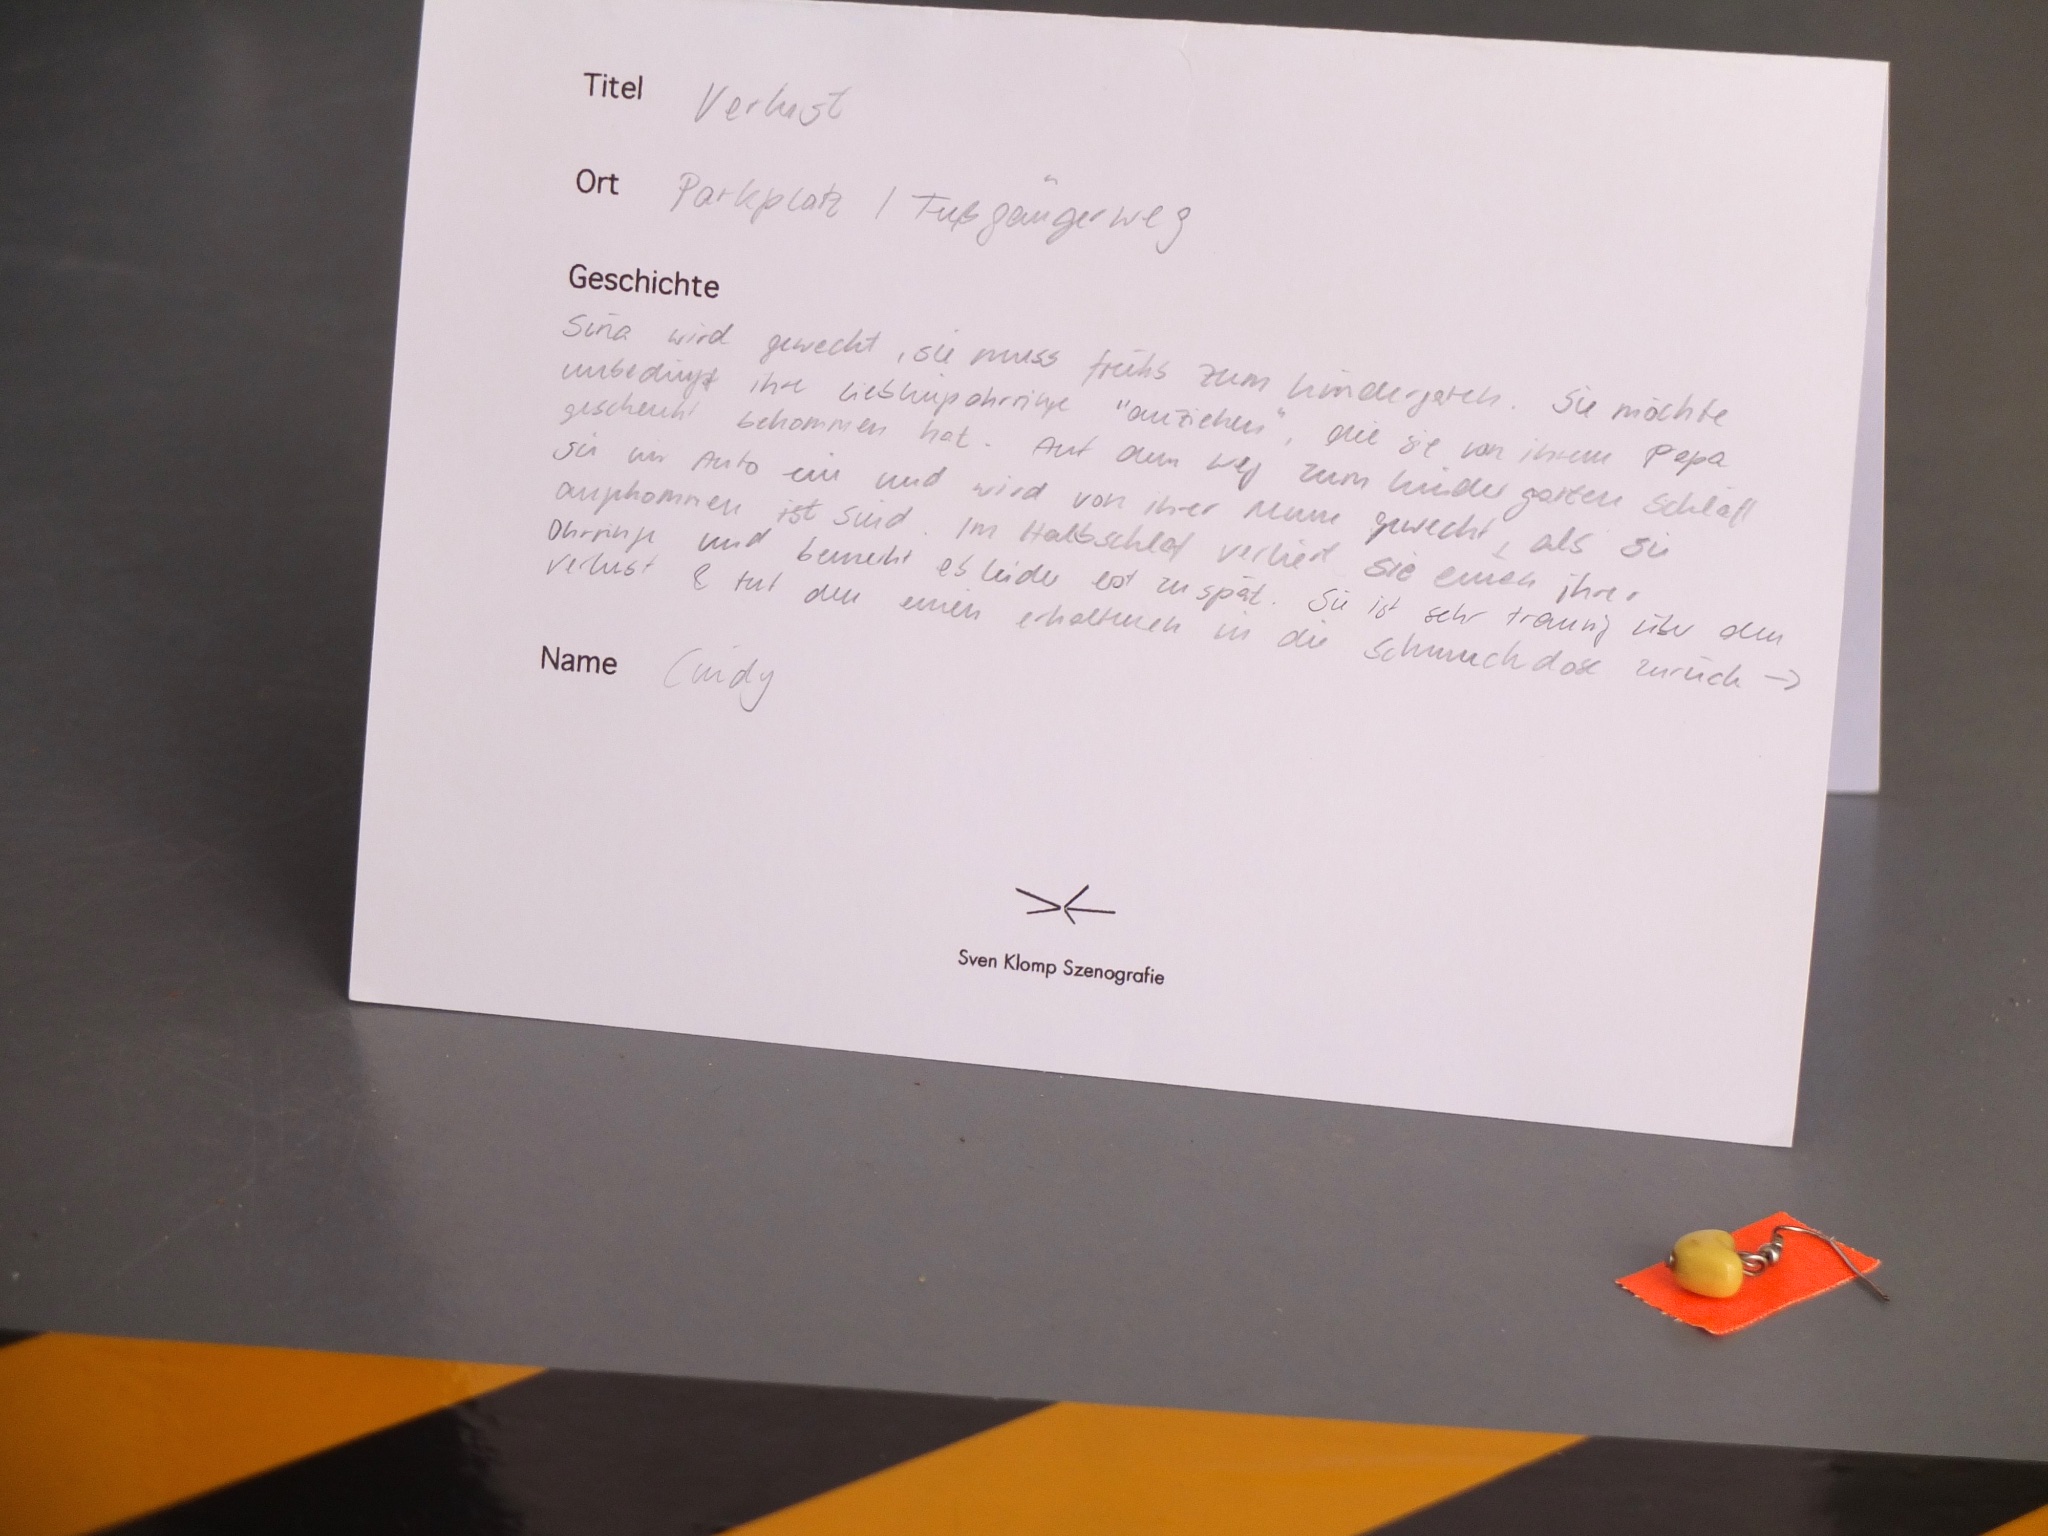 Titel Verlust
Ort Parkplatz / Fußgängerweg
Geschichte
Sina wird geweckt, sie muss frühs zum Kindergarten. Sie möchte
unbedingt ihre Lieblingsohrringe "anziehen", die sie von ihrem Papa
geschenkt bekommen hat. Auf dem Weg zum Kindergarten schläft
sie im Auto ein und wird von ihrer Mama geweckt, als sie
angekommen ist sind. Im Halbschlaf verliert sie einen ihrer
Ohrringe und bemerkt es leider erst zu spät. Sie ist sehr traurig über den
Verlust & tut den einen erhaltenen in die Schmuckdose zurück →
Name Cindy
Sven Klomp Szenografie